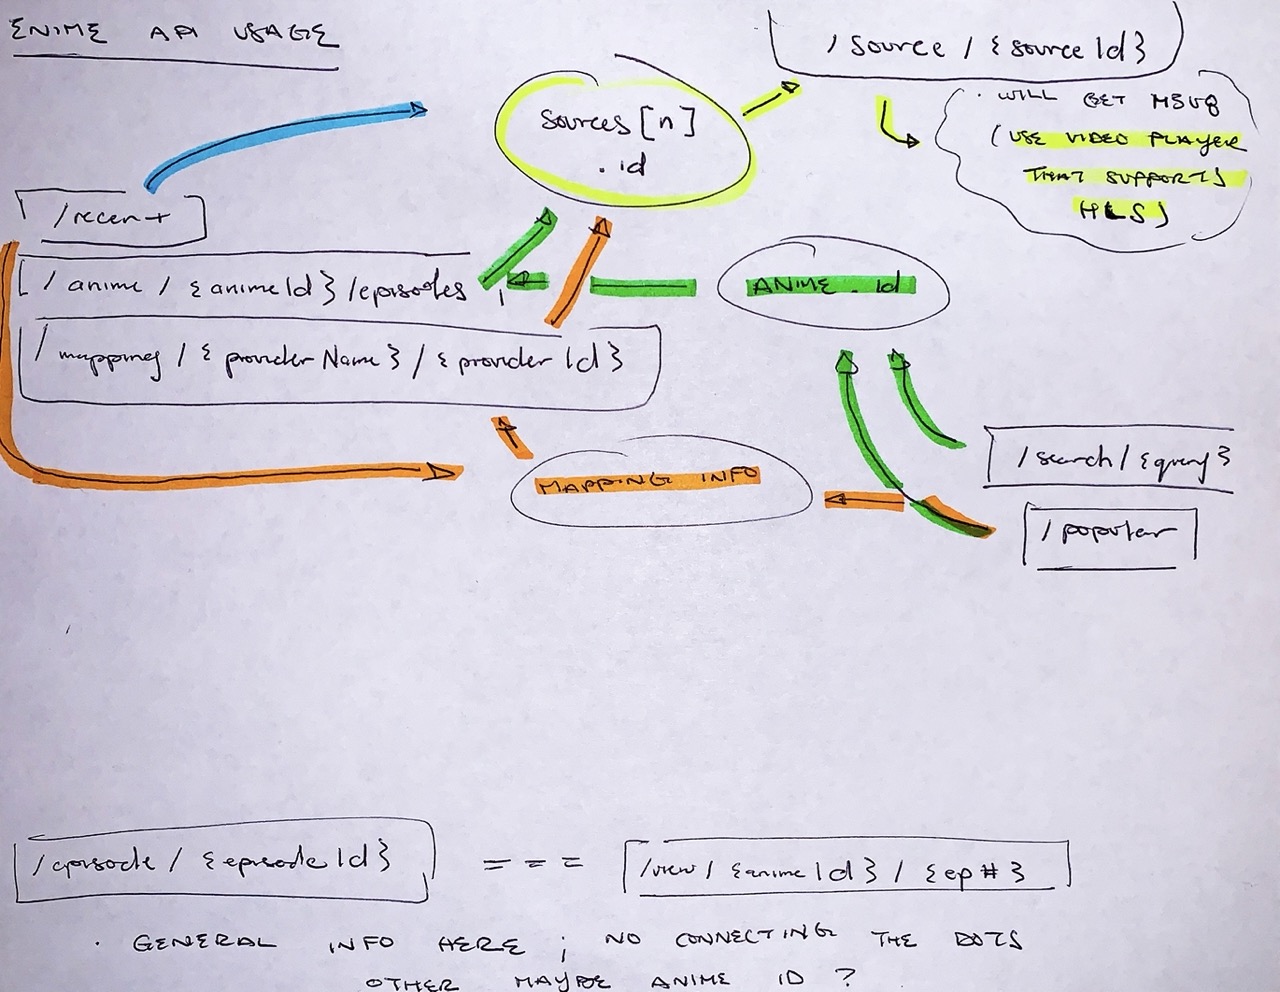 ENIME API USAGE
/ source / {source Id}
· WILL GET M3U8
(USE VIDEO PLAYER
THAT SUPPORTS
HLS)
sources [n]
. id
/recent
/ anime / {anime Id} /episodes
ANIME . id
/ mapping / {provider Name} / {provider Id}
MAPPING INFO
/search/ {query}
/popular
/episode / {episode Id}
===
/view / {anime Id} / {ep #}
· GENERAL INFO HERE ; NO CONNECTING THE DOTS
OTHER MAYBE ANIME ID ?